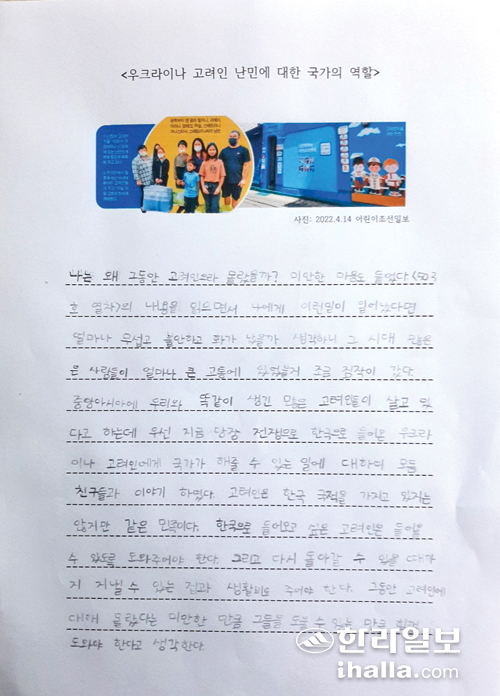 <우크라이나 고려인 난민에 대한 국가의 역할>
사진: 2022.4.14 어린이조선일보
나는 왜 그동안 고려인을 몰랐을까? 미안한 마음도 들었다. <503
호 열차>의 내용을 읽으면서 나에게 이런일이 일어났다면
얼마나 무섭고 불안하고 화가 났을까 생각하니 그 시대
은 사람들이 얼마나 큰 고통에 있었을거 조금 짐작이 갔다.
중앙아시아에 우리와 똑같이 생긴 많은 고려인들이 살고 있
다고 하는데 우선 지금 당장 전쟁으로 한국으로 들어온 우크라
이나 고려인에게 국가가 해줄 수 있는 일에 대하여 모둠
친구들과 이야기 하였다. 고려인은 한국 국적을 가지고 있지는
않지만 같은 민족이다. 한국으로 들어오고 싶은 고려인은 들어올
수 있도록 도와주어야 한다. 그리고 다시 돌아갈 수 있을 때까
지 지낼 수 있는 집과 생활비도 주어야 한다. 그동안 고려인에
대해 몰랐다는 미안한 만큼 그들을 도울 수 있는 만큼 힘껏
도와야 한다고 생각한다.
한라일보
ihalla.com